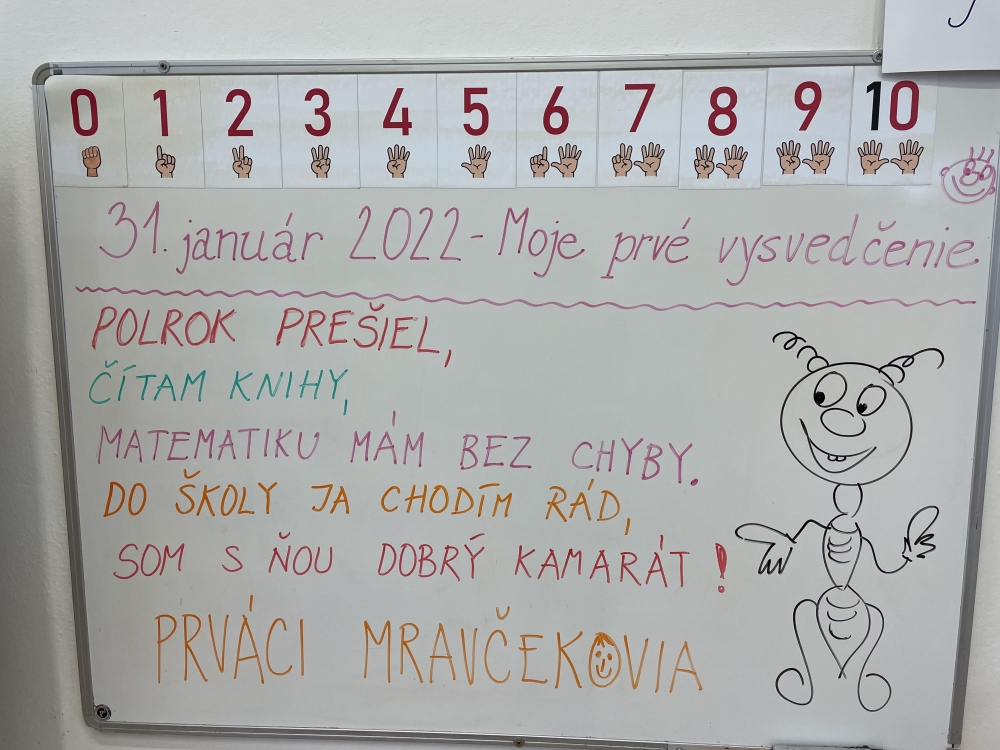 0 1 2 3 4 5 6 7 8 9 10
31. január 2022 - Moje prvé vysvedčenie
POLROK PREŠIEL,
ČÍTAM KNIHY,
MATEMATIKU MÁM BEZ CHYBY.
DO ŠKOLY JA CHODÍM RÁD,
SOM S ŇOU DOBRÝ KAMARÁT!
PRVÁCI MRAVČEKOVIA